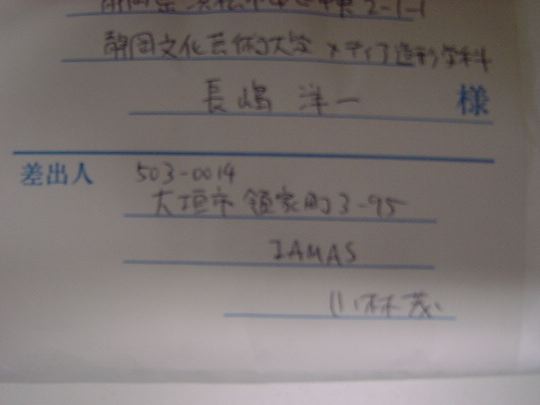 静岡県浜松市中区中央2-1-1
静岡文化芸術大学 メディア造形学科
長嶋 洋一 様
差出人 503-0014
大垣市 領家町3-95
IAMAS
小林茂